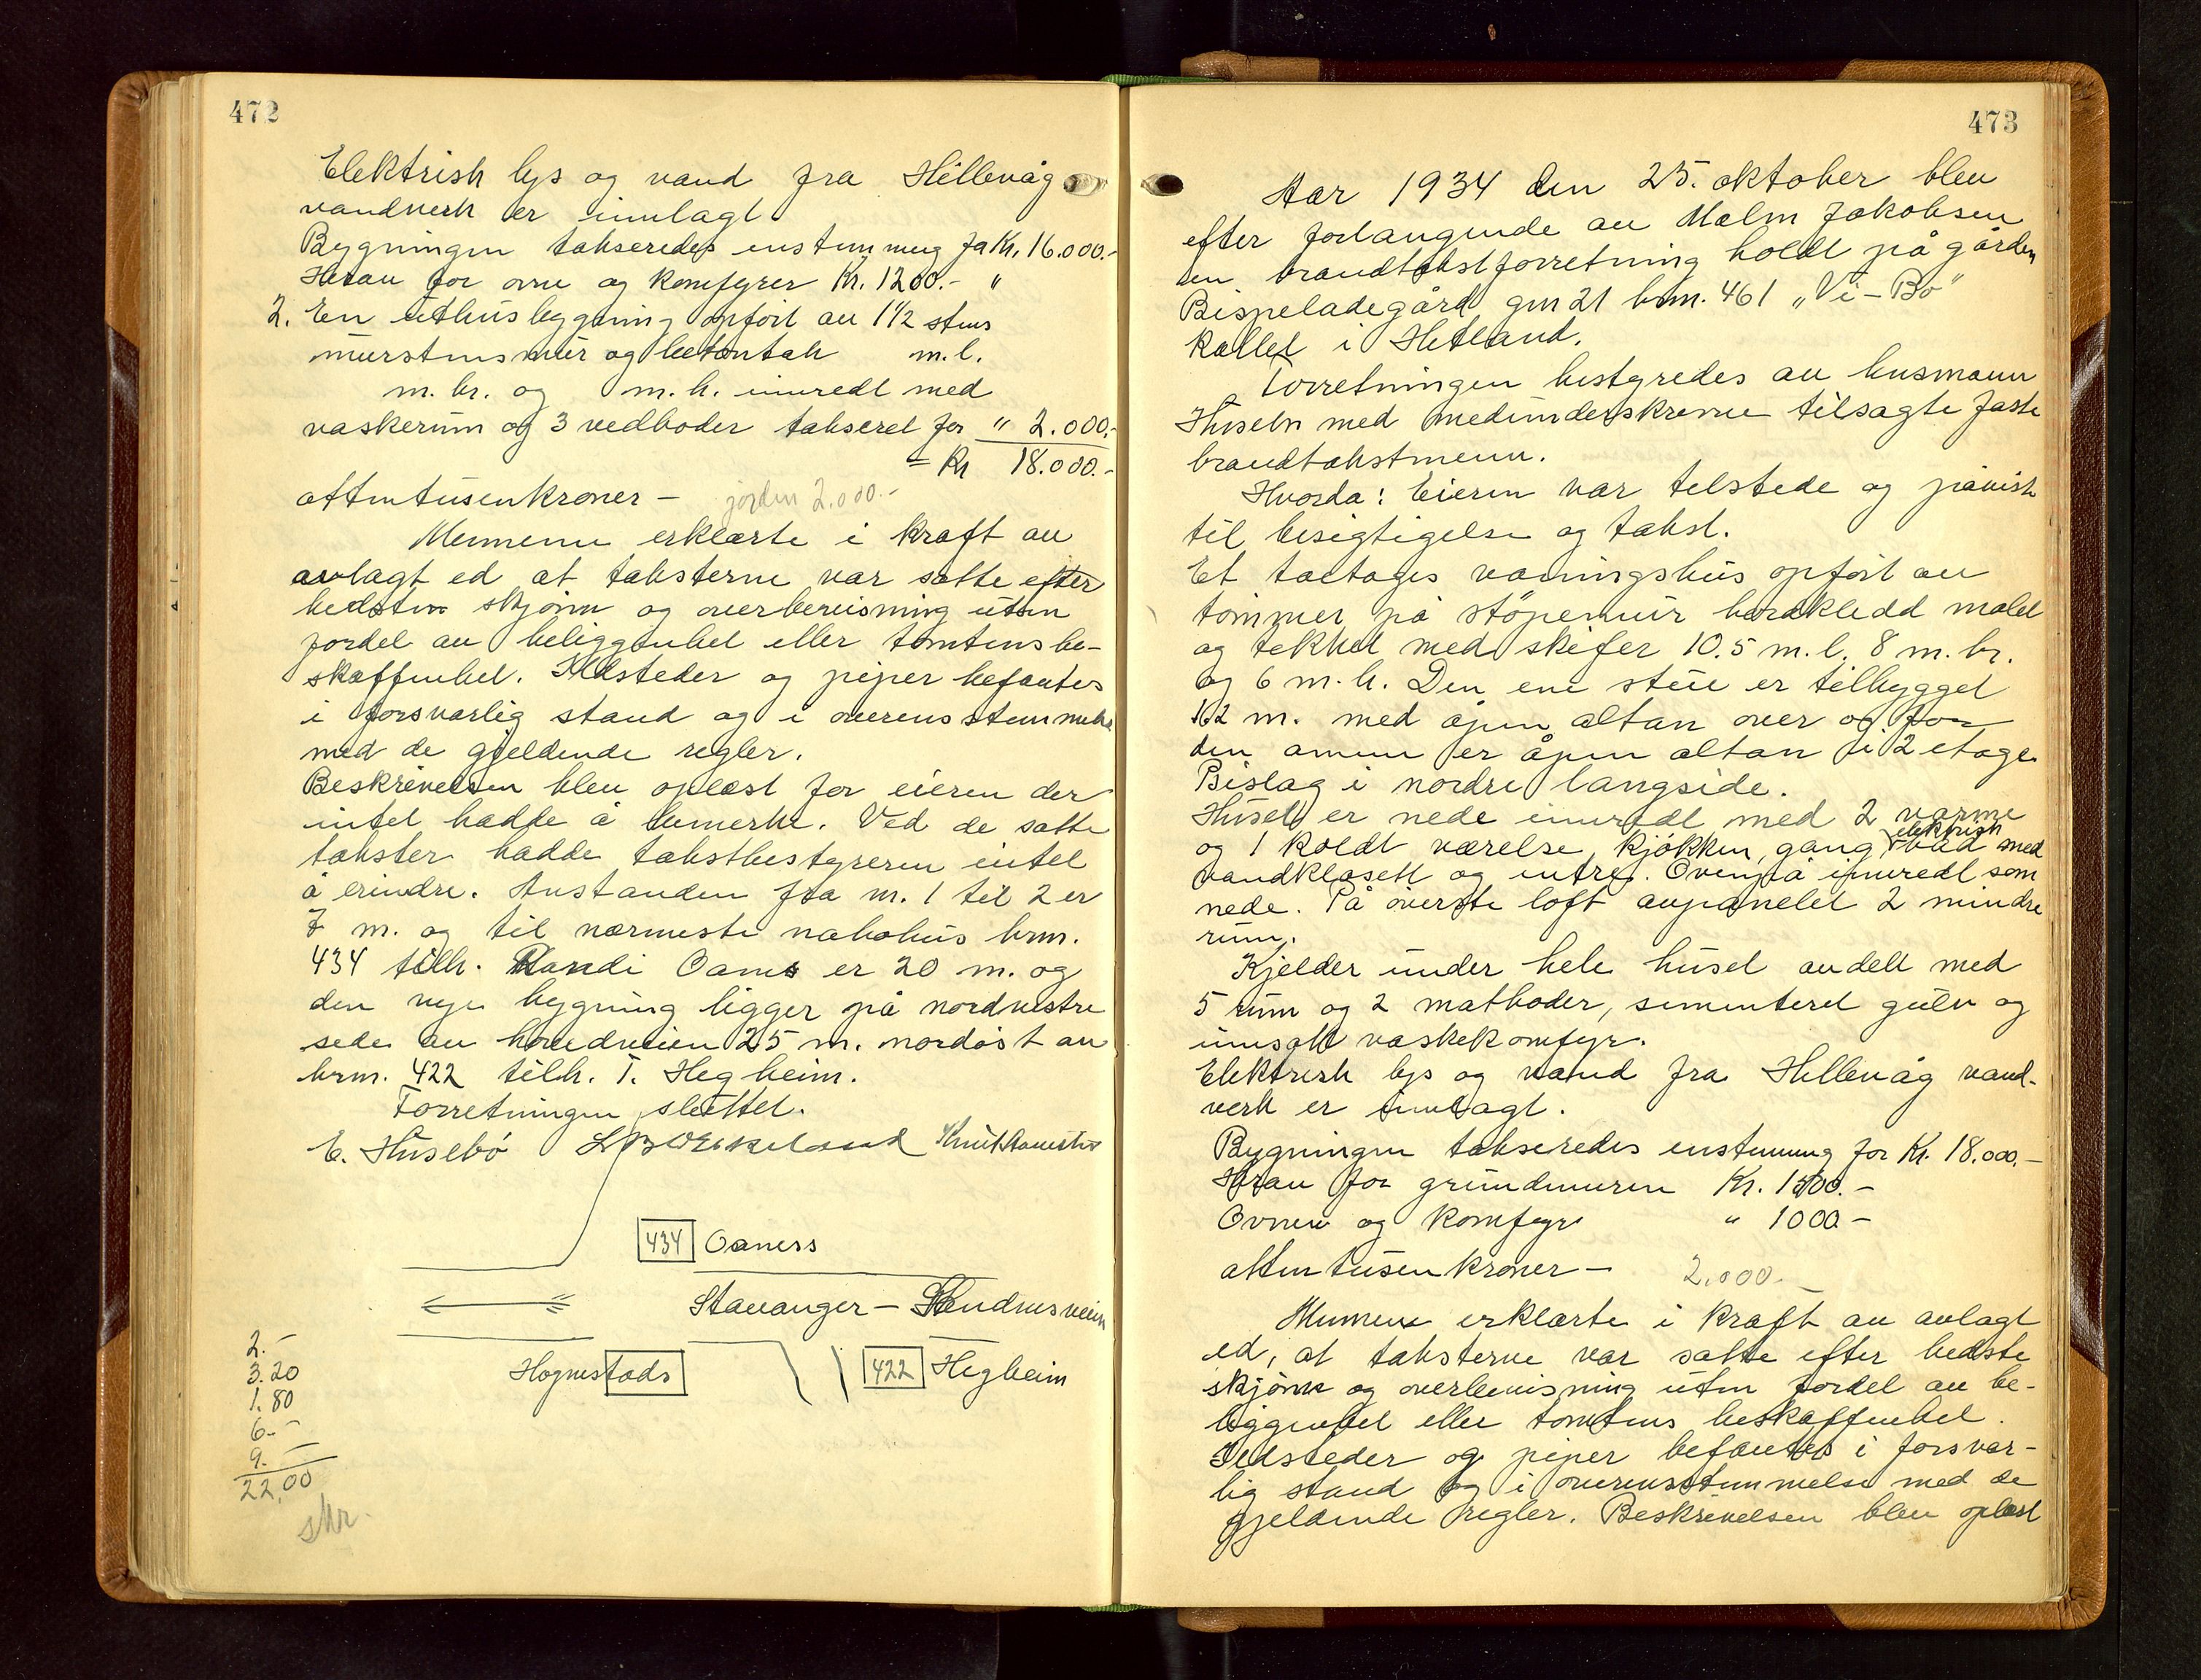 472
Elektrisk lys og vand fra Hillevåg
vandverk er innlagt
Bygningen takseredes enstemmig fa Kr. 16.000.-
Herav for ovne og komfyrer Kr. 1200.- "
2. En uthusbygning opført av 1 1/2 stens
murstensmur og betontak m.l.
m. br. og m.h. innredt med
vaskerum og 3 vedboder takseret for " 2.000.-
= Kr 18.000.-
attentusenkroner - jorden 2.000.-
Mennene erklærte i kraft av
avlagt ed at taksterne var satte efter
bedste skjønn og overbevisning uten
fordel av beliggenhet eller tomtens be-
skaffenhet. Ildsteder og piper befantes
i forsvarlig stand og i overensstemmelse
med de gjeldende regler.
Beskrivelsen blev oplæst for eieren der
intet hadde å bemerke. Ved de satte
takster hadde takstbestyreren intet
å erindre. Avstanden fra m. 1 til 2 er
7 m. og til nærmeste nabohus brnr.
434 tilh. Randi Oanes er 20 m. og
den nye bygning ligger på nordvestre
side av hovedveien 25 m. nordøst av
brnr. 422 tilh. T. Hegheim.
Forretningen sluttet.
E. Husebø L B Weskeland Knut
434 Oaness
Stavanger - Sandnesveien
Hognestads 422 Hegheim
2.-
3.20
1.80
6.-
9.-
22,00
skr.
473
Aar 1934 den 25. oktober blev
efter forlangende av Malm Jakobsen
en brandtakstforretning holdt på gården
Bispeladegård gnr 21 brnr. 461 „Vi-Bo"
kallet i Hetland.
Forretningen bestyredes av lensmann
Husebø med medunderskrevne tilsagte faste
brandtakstmenn.
Hvorda: Eieren var tilstede og påviste
til besigtigelse og takst.
Et toetages våningshus opført av
tømmer på støpemur bordkledd malet
og tekket med skifer 10.5 m.l. 8 m. br.
og 6 m.h. Den ene stue er tilbygget
1.2 m. med åpen altan over og for
den annen er åpen altan i 2 etage.
Bislag i nordre langside.
Huset er nede innredt med 2 varme
og 1 koldt værelse, kjøkken, gang, elektrisk bad med
vandklosett og entre. Ovenpå innredt som
nede. På øverste loft avpanelet 2 mindre
rum.
Kjelder under hele huset avdelt med
5 rum og 2 matboder, sementeret gulv og
innsatt vaskekomfyr.
Elektrisk lys og vand fra Hillevåg vand-
verk er innlagt.
Bygningen takseredes enstemmig for Kr. 18.000.-
Herav for grundmuren Kr. 1500.-
Ovner og komfyr " 1000-
attentusenkroner - 2.000.-
Mennene erklærte i kraft av avlagt
ed, at taksterne var satte efter bedste
skjønn og overbevisning uten fordel av be-
liggenhet eller tomtens beskaffenhet.
Ildsteder og piper befantes i forsvar-
lig stand og i overensstemmelse med de
gjeldende regler. Beskrivelsen blev oplæst